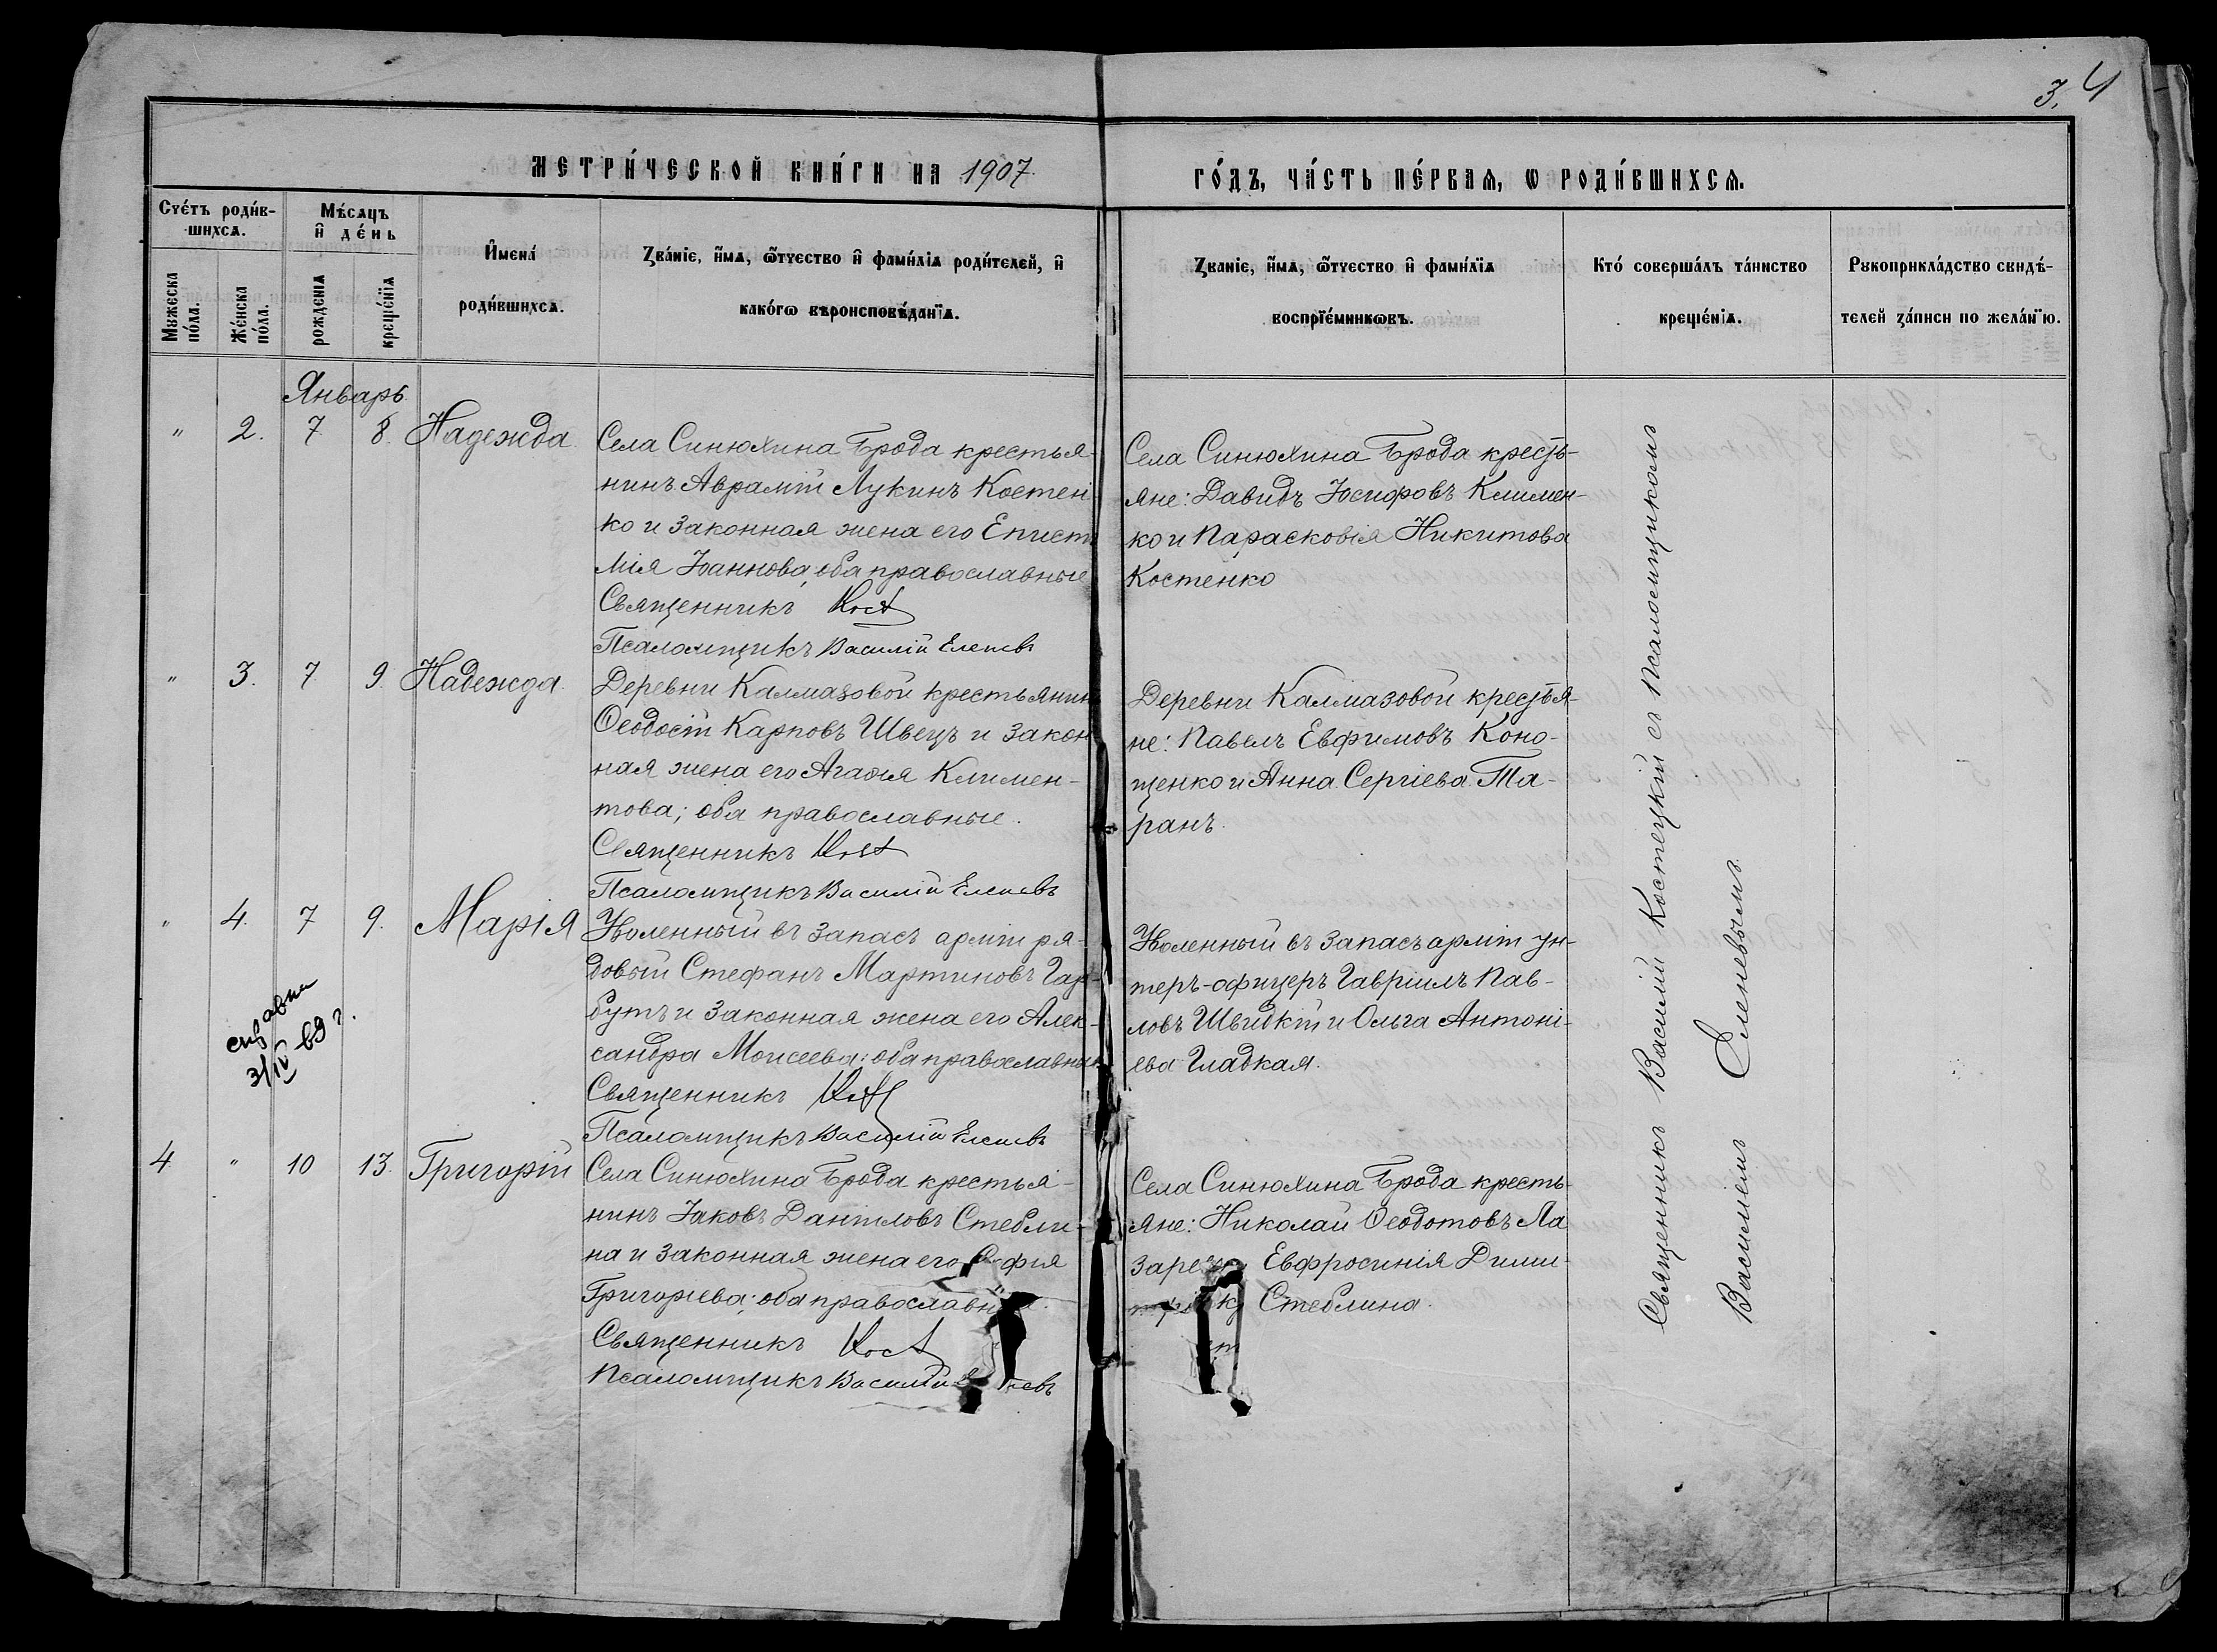 3. 4
МЕТРИ́ЧЕСКОЙ КНИ́ГИ НА 1907 ГО́ДЪ, ЧА́СТЬ ПЕ́РВАѦ, Ѡ РОДИ́ВШИХСѦ.
Сче́тъ роди́в-
шихсѧ.
Мѣ́сѧцъ
и҆ де́нь
Мꙋжеска
по́ла.
Же́нска
по́ла.
рожденїѧ
креще́нїѧ
И҆мена́
роди́вшихсѧ.
Зва́нїе, и҆́мѧ, ѻ҆́тчество и҆ фами́лїѧ роди́телей, и҆
како́гѡ вѣроисповѣ́данїѧ.
Званїе, и҆́мѧ, ѻ҆́тчество и҆ фами́лїѧ
воспрїе́мникѡвъ.
Кто́ соверша́лъ та́инство
креще́нїѧ.
Рꙋкоприкла́дство свидѣ́-
телей за́писи по жела́нїю.
Январь
" 2. 7 8. Надежда
Села Синюхина Брода крестья-
нинъ Аврамій Лукинъ Костен
ко и законная жена его Епист
мія Іоаннова; оба православные
Священникъ Кост
Псаломщикъ Василій Елепевъ
Села Синюхина Брода кресть-
яне: Давидъ Іосифовъ Климен-
ко и Парасковія Никитова
Костенко
" 3. 7 9. Надежда
Деревни Калмазовой крестьянин
Ѳеодосій Карповъ Швецъ и закон
ная жена его Агафія Климен-
това; оба православные.
Священникъ Кост
Псаломщикъ Василій Елепевъ
Деревни Калмазовой крестья-
не: Павелъ Евфимовъ Коно-
щенко и Анна Сергіева Та-
ранъ.
" 4. 7 9. Марія
Уволенный въ запасъ арміи ря-
довый Стефанъ Мартиновъ Гар-
бутъ и законная жена его Алек-
сандра Моисеева; оба православны
Священникъ Кост
Псаломщикъ Василій Елепевъ
Уволенный въ запасъ арміи ун-
теръ-офицеръ Гавріилъ Пав-
ловъ Швидкій и Ольга Антоні-
ева Гладкая.
справка
3/IV 69 г.
4 " 10 13. Григорій
Села Синюхина Брода крестья-
нинъ Іаковъ Даніиловъ Стебли-
на и законная жена его Софія
Григоріева; оба православн
Священникъ Кост
Псаломщикъ Василій
Села Синюхина Брода кресть-
яне: Николай Ѳеодотовъ Ла
Евфросинія Дими-
Стеблина.
Священникъ Василій Костецкій съ псаломщикомъ
Василіемъ Елепевымъ.